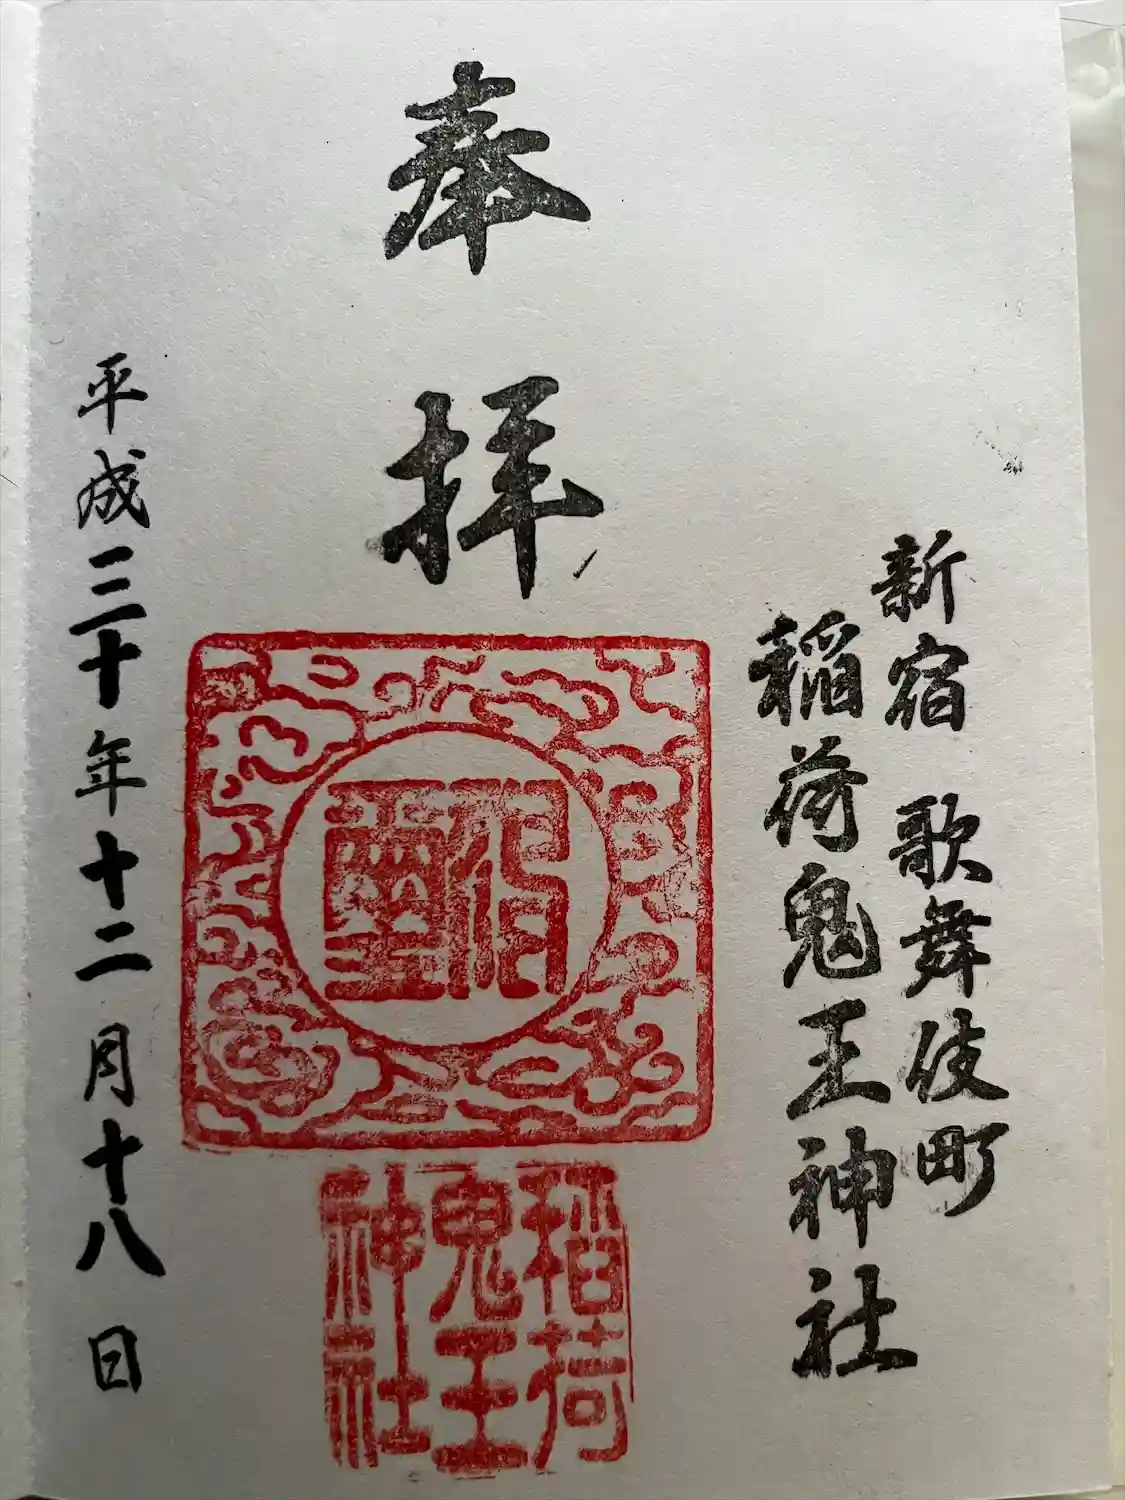 新宿 歌舞伎町
稲荷鬼王神社
奉拝
稲荷
鬼王
神社
平成三十年十二月十八日